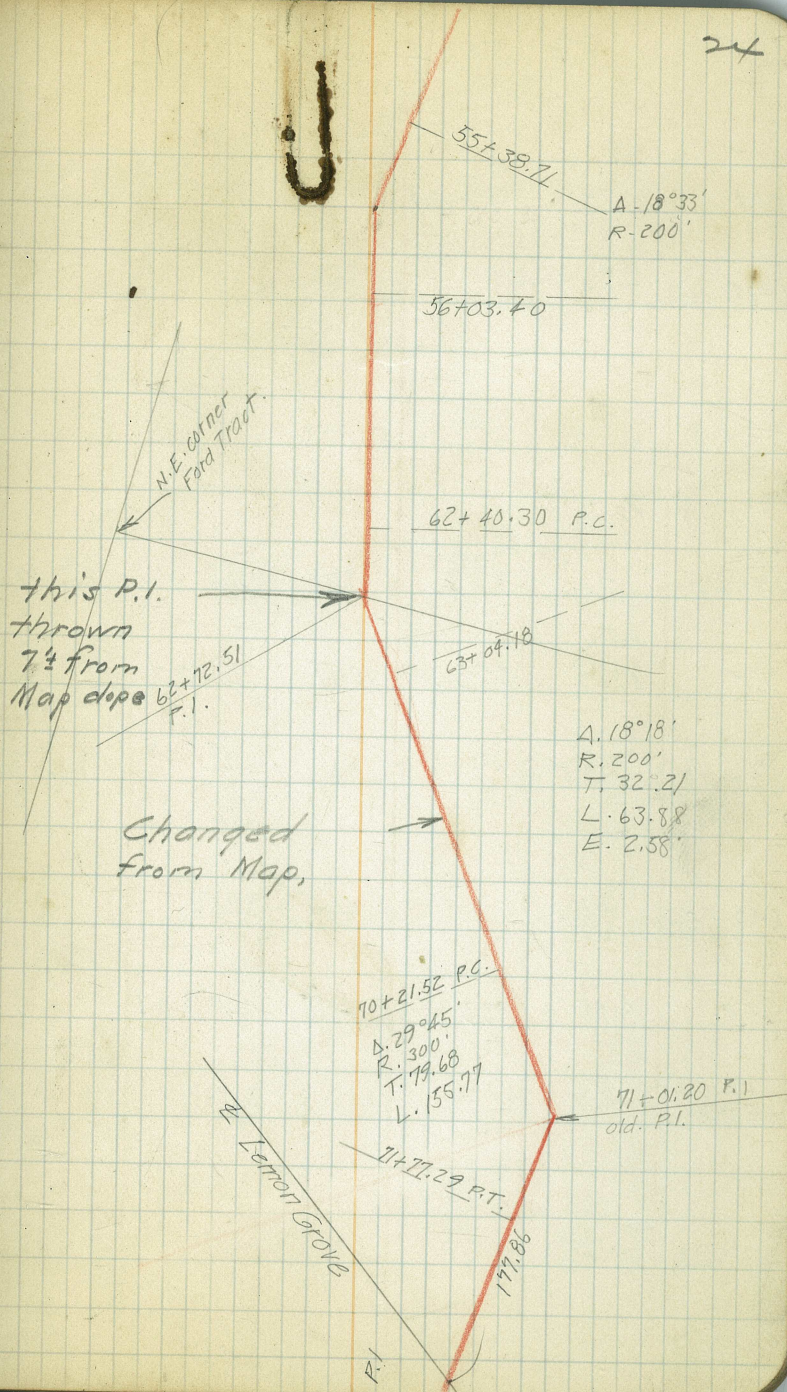 24
55+38.71
Δ-18°33'
R-200'
56+03.40
N.E. corner
Ford Tract.
62+40.30 P.C.
this P.I.
thrown
7'± from
Map dope
62+72.51
P.I.
63+04.18
Δ.18°18'
R.200'
T. 32.21
L. 63.88
E. 2.58'
Changed
from Map,
70+21.52 P.C.
Δ.29°45'
R. 300'
T. 79.68
L. 155.77
71+01.20 P.I
old. P.I.
71+77.29 P.T.
℄ Lemon Grove
177.86
P.I